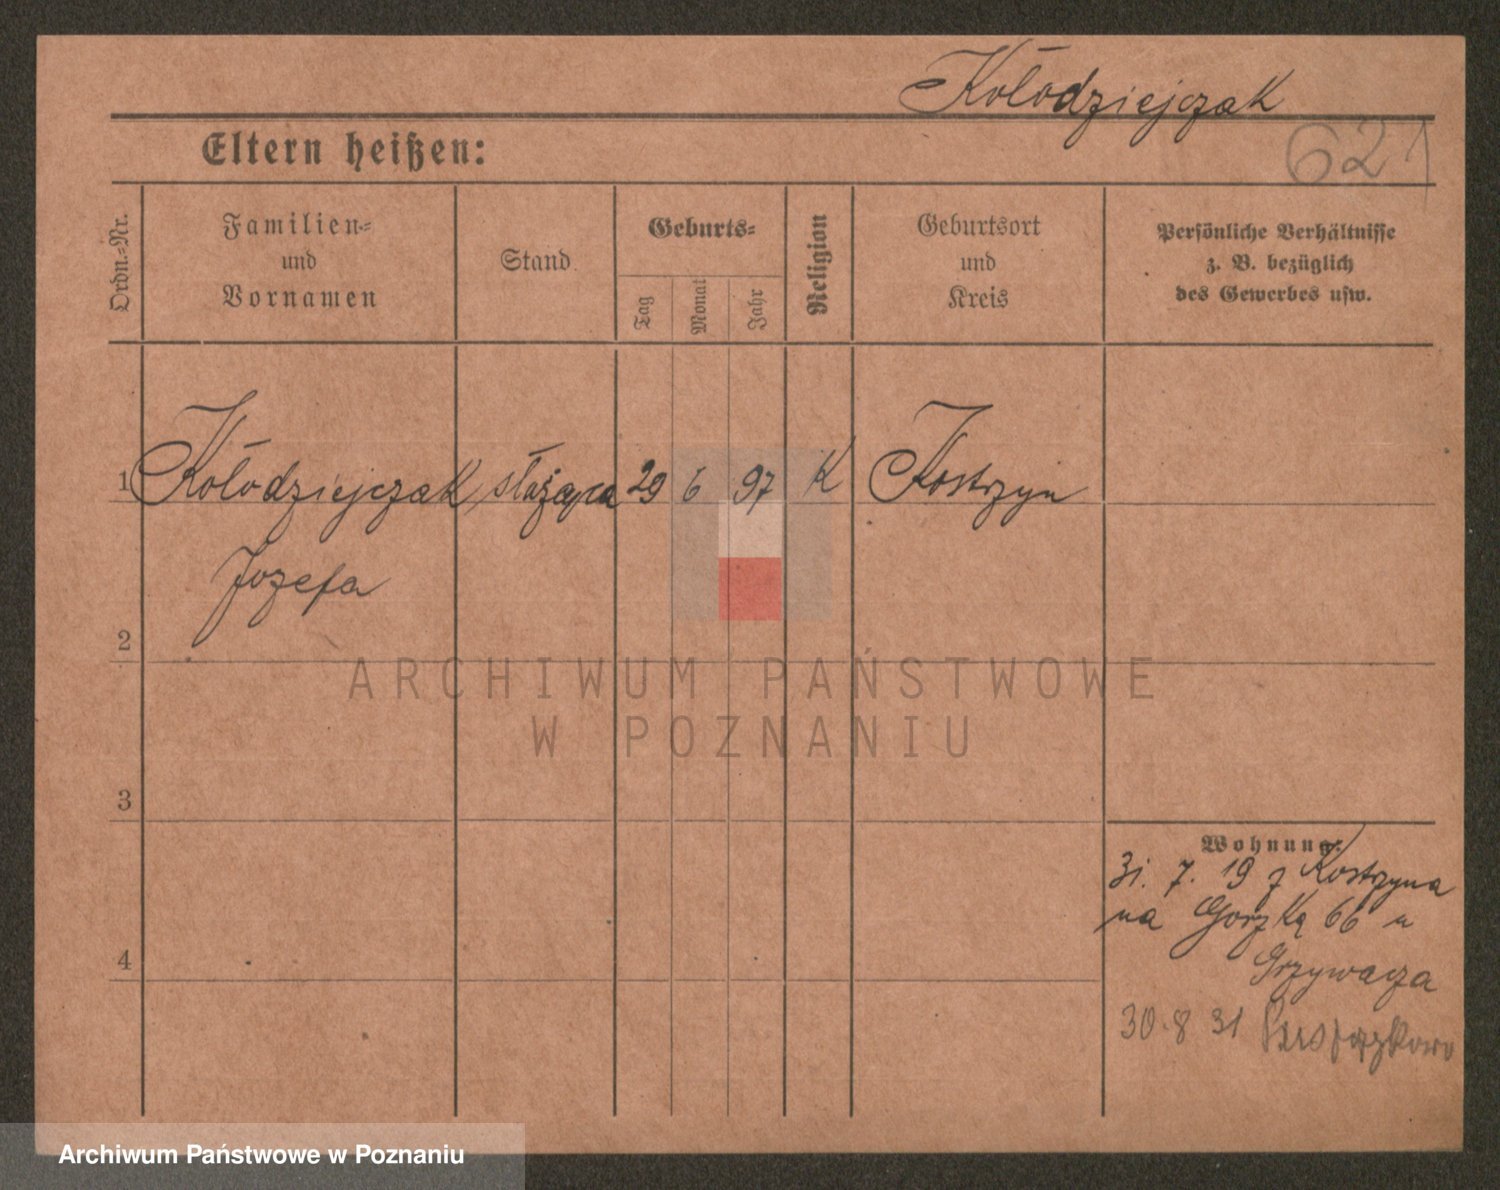 Kołodziejczak
621
Eltern heißen:
Ordn.-Nr.
Familien-
und
Vornamen
Stand
Geburts-
Tag
Monat
Jahr
Religion
Geburtsort
und
Kreis
Persönliche Verhältnisse
z. B. bezüglich
des Gewerbes usw.
1 Kołodziejczak służąca 29 6 97 K Kostrzyn
Józefa
2
ARCHIWUM PAŃSTWOWE
W POZNANIU
3
Wohnung:
31. 7. 19 z Kostrzyna
na 66 u
4
Grzywacza
30.8 31
Archiwum Państwowe w Poznaniu